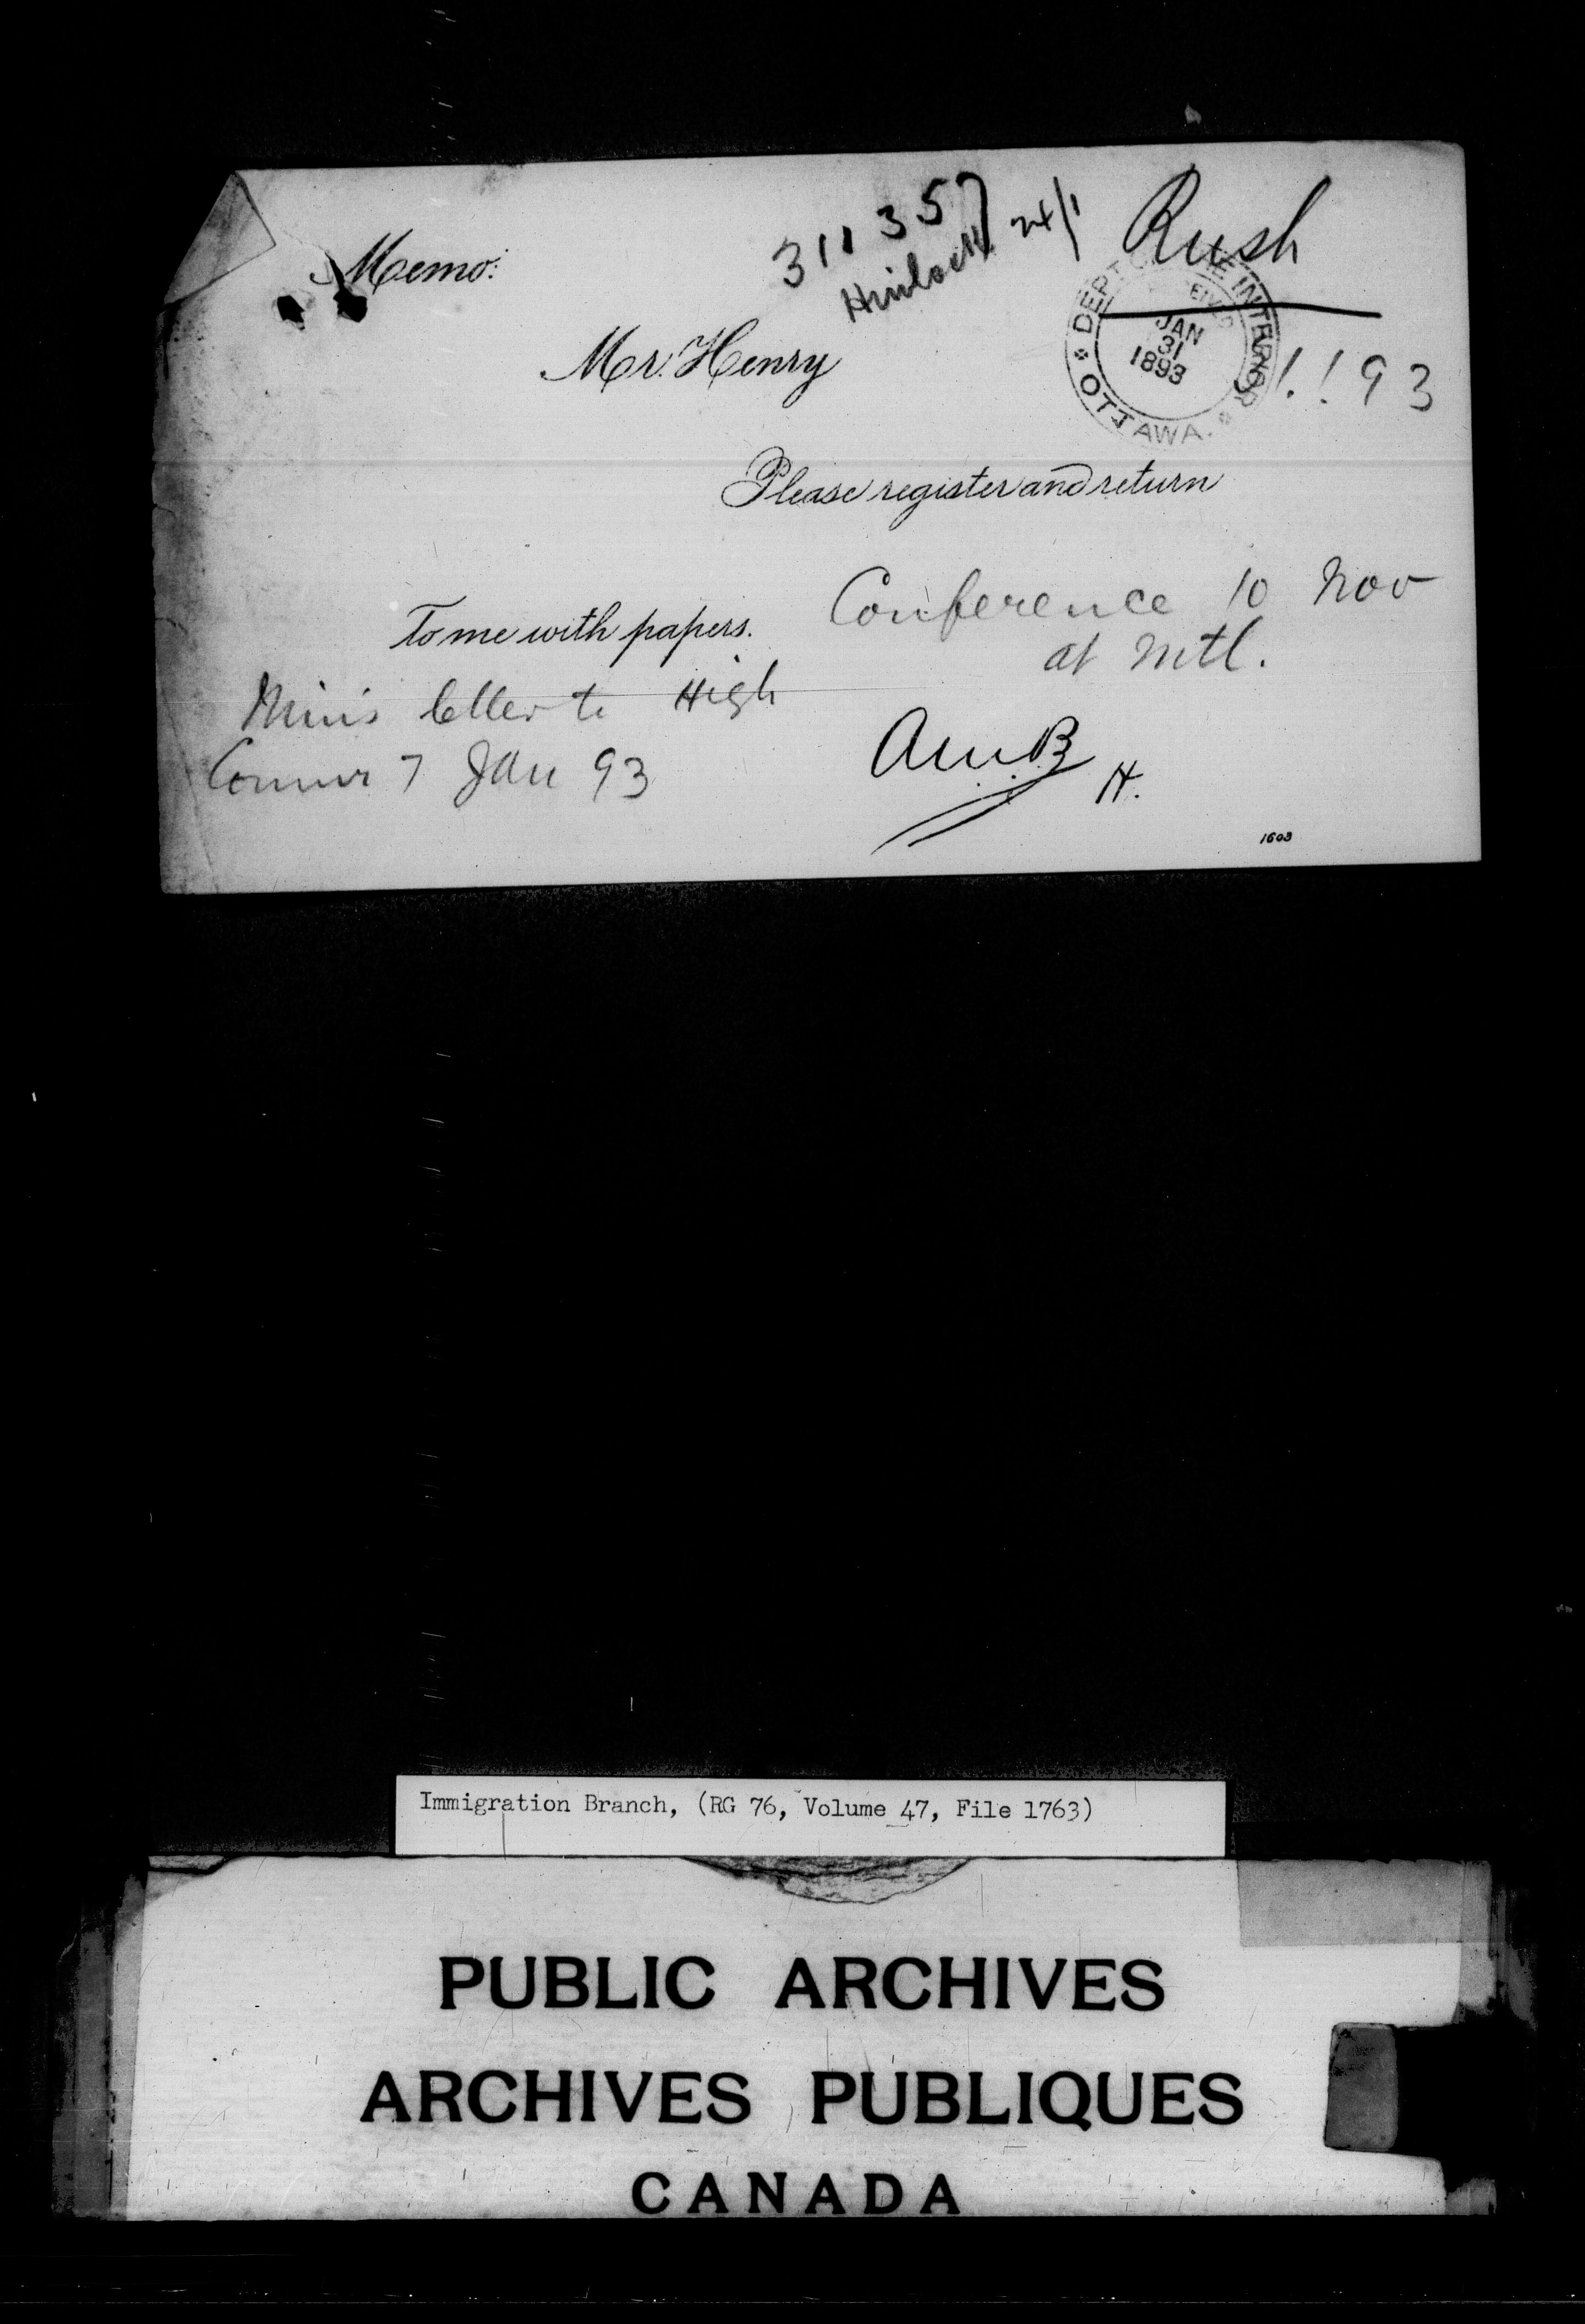 311357 24/1 Rush
Memo:
DEPT OF THE INTERIOR
JAN
31
1893
OTTAWA.
Mr. Henry
31.1.93
Please register and return
To me with papers.
Conference 10 Nov
at Mtl.
Min's letter to High
Commr 7 Jan 93
H.
1603
Immigration Branch, (RG 76, Volume 47, File 1763)
PUBLIC ARCHIVES
ARCHIVES PUBLIQUES
CANADA